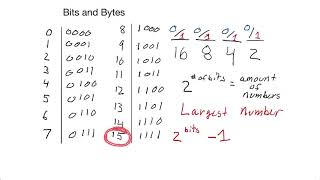 Bits and Bytes
0 0000 8 1000
1 0001 9 1001
2 0010 10 1010
3 0011 11 1011
4 0100 12 1100
5 0101 13 1101
6 0110 14 1110
7 0111 15 1111
0/1 0/1 0/1 0/1
16 8 4 2
2^# of bits = amount
of
numbers
Largest Number
2^bits -1